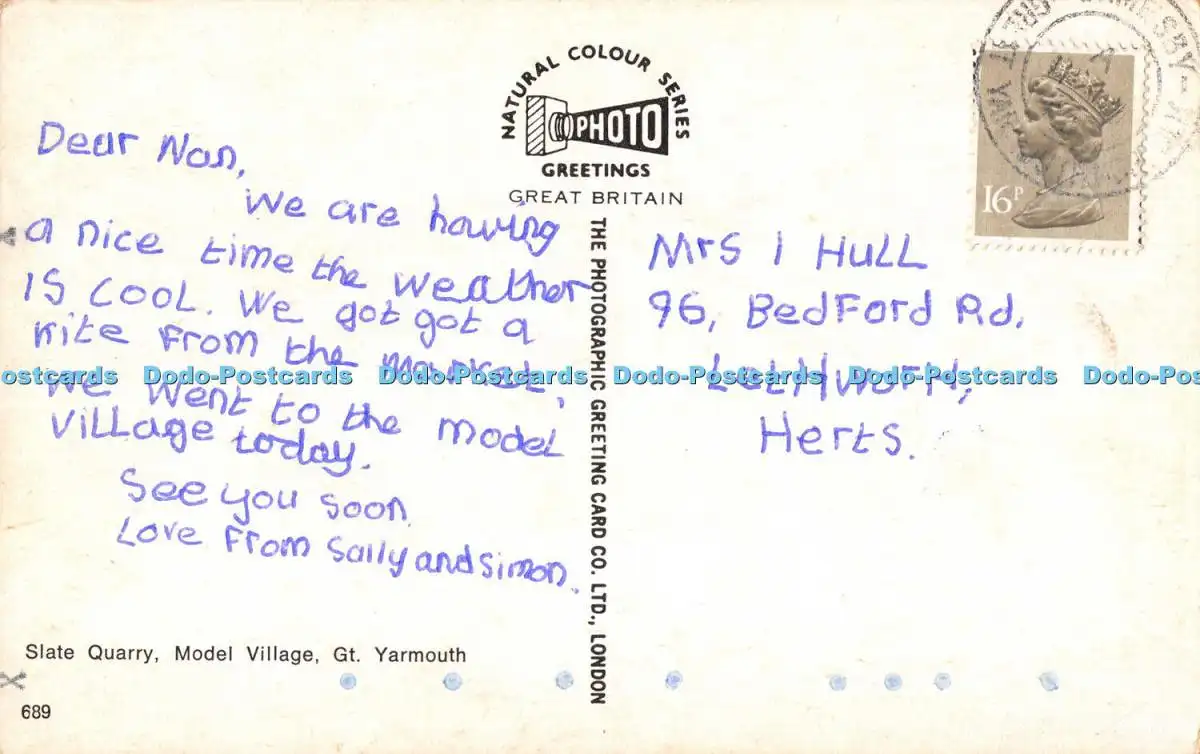 Dear Nan,
We are having
a nice time the weather
is cool. We got got a
kite from the market,
We went to the model
village today.
See you soon
Love From Sally and Simon.
Slate Quarry, Model Village, Gt. Yarmouth
689
NATURAL COLOUR SERIES
PHOTO
GREETINGS
GREAT BRITAIN
THE PHOTOGRAPHIC GREETING CARD CO. LTD., LONDON
16P
Mrs I Hull
96, Bedford Rd.
Letchworth,
Herts.
ostcards Dodo-Postcards Dodo-Postcards Dodo-Postcards Dodo-Postcards Dodo-Pos